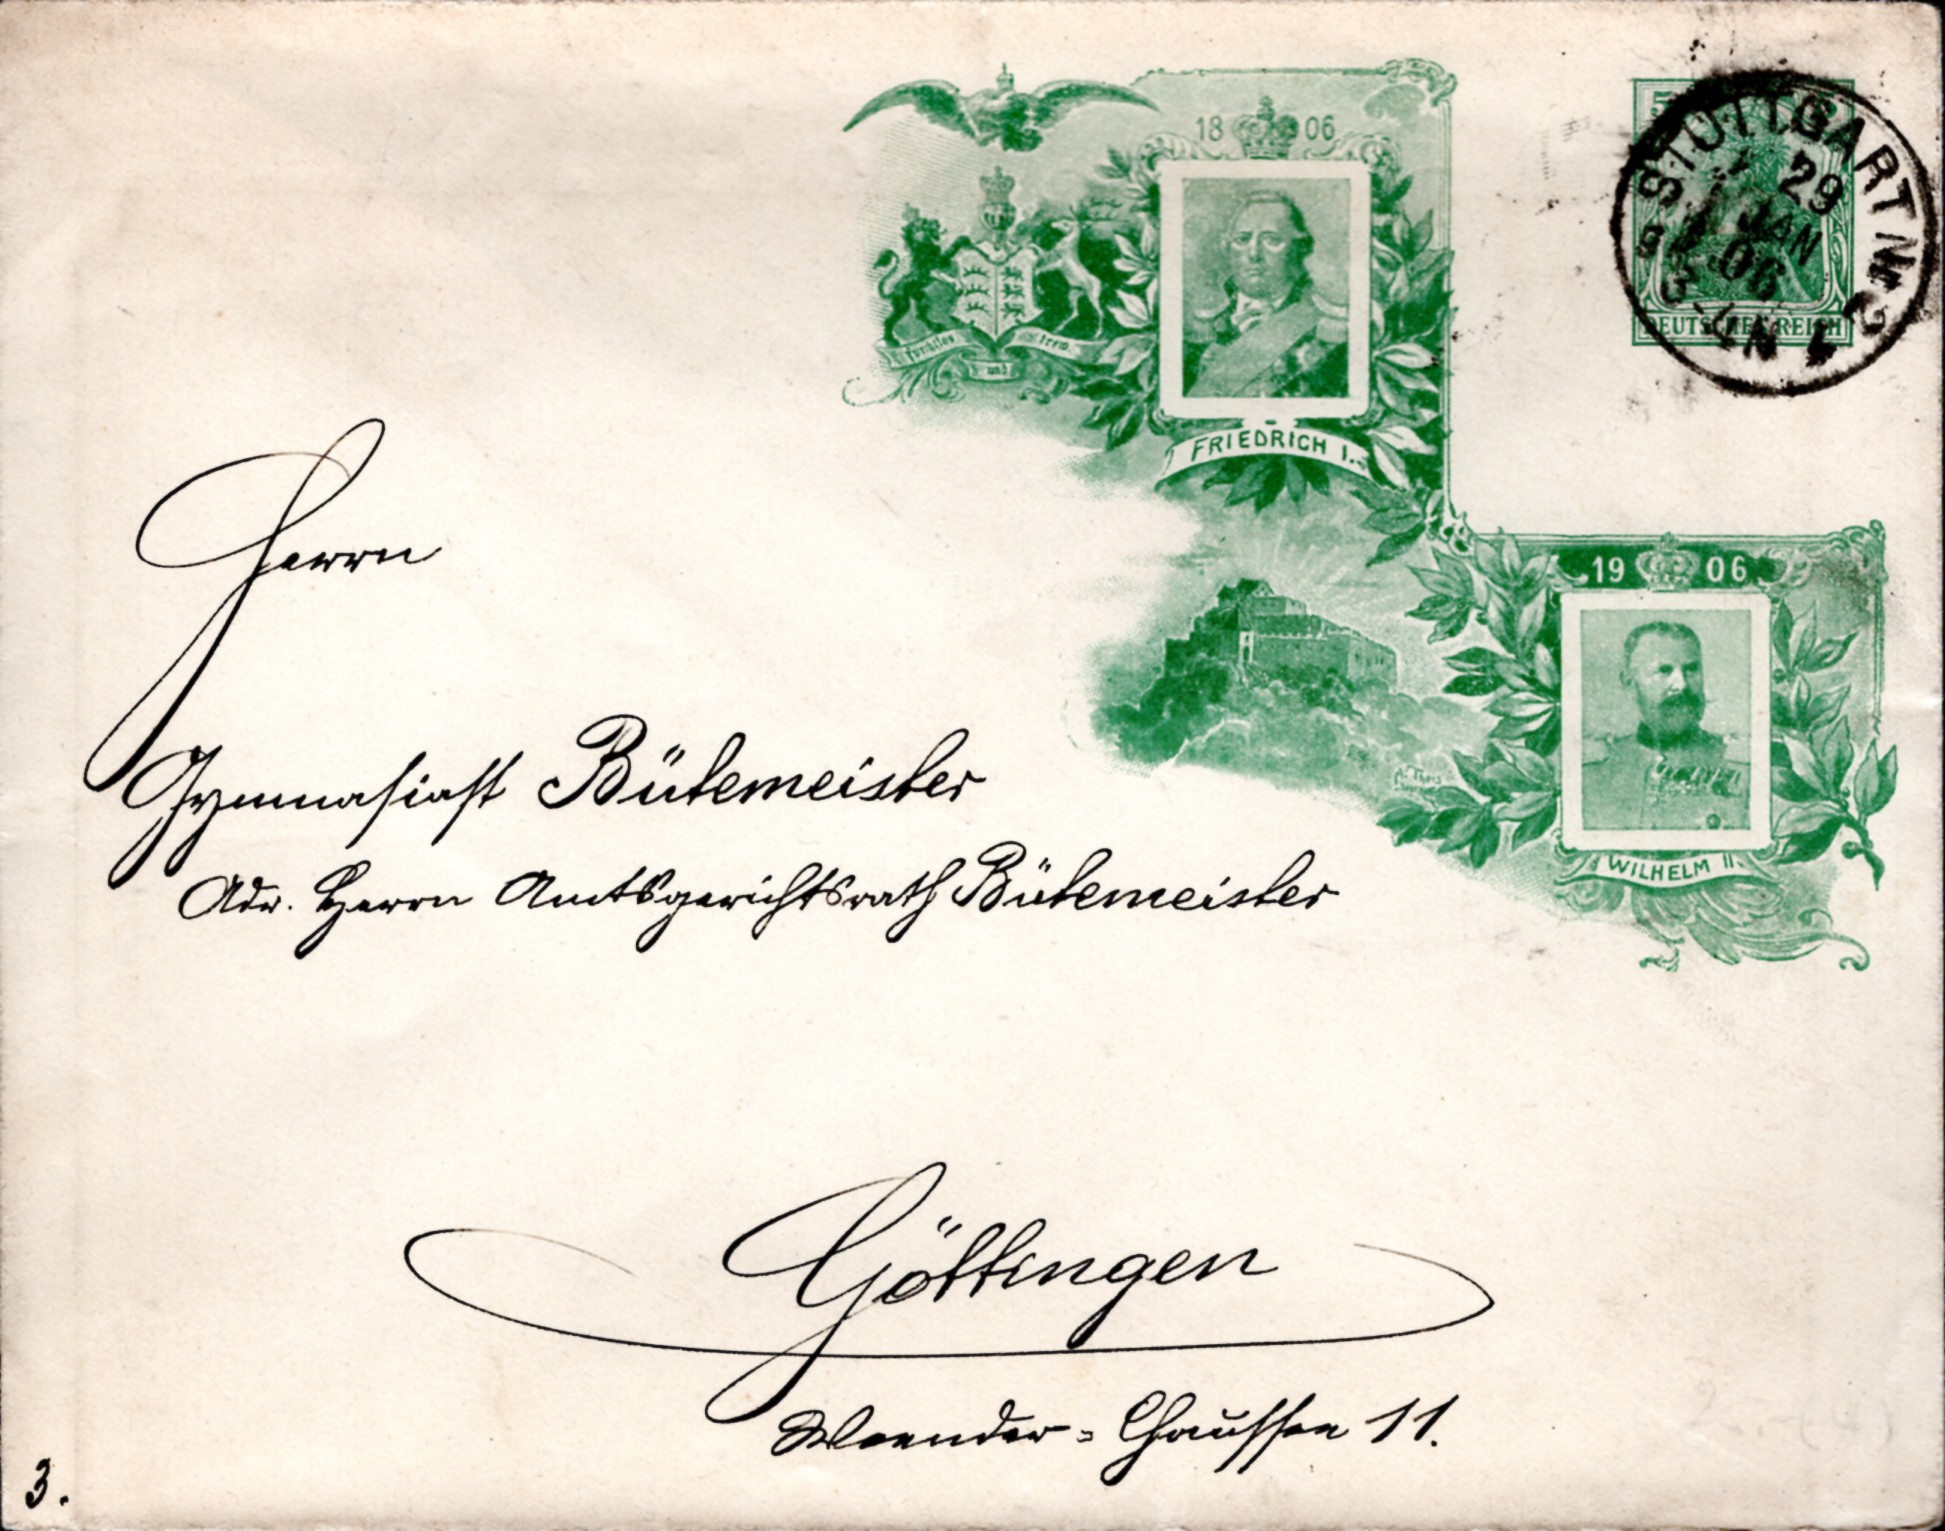 18 06
STUTTGART No 2
29
JAN
06
3-4N
DEUTSCHES REICH
Furchtlos und trew
FRIEDRICH I.
19 06
WILHELM II.
Herrn
Gymnasiast Bütemeister
Adr. Herrn Amtsgerichtsrath Bütemeister
Göttingen
Weender-Chaussee 11.
3.